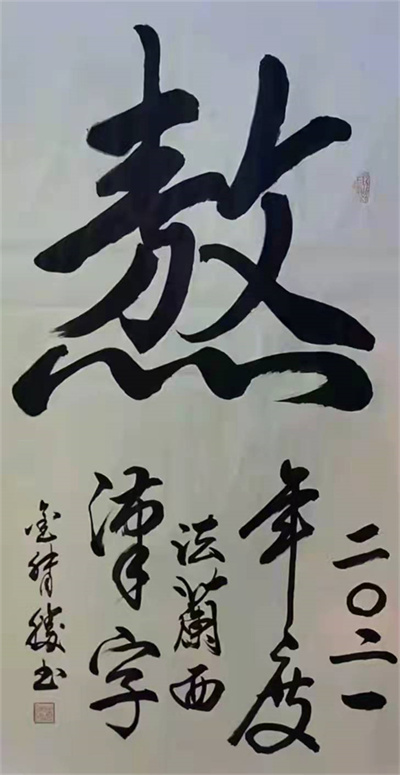 熬
二〇二一
年度
法蘭西
漢字
金 勝書